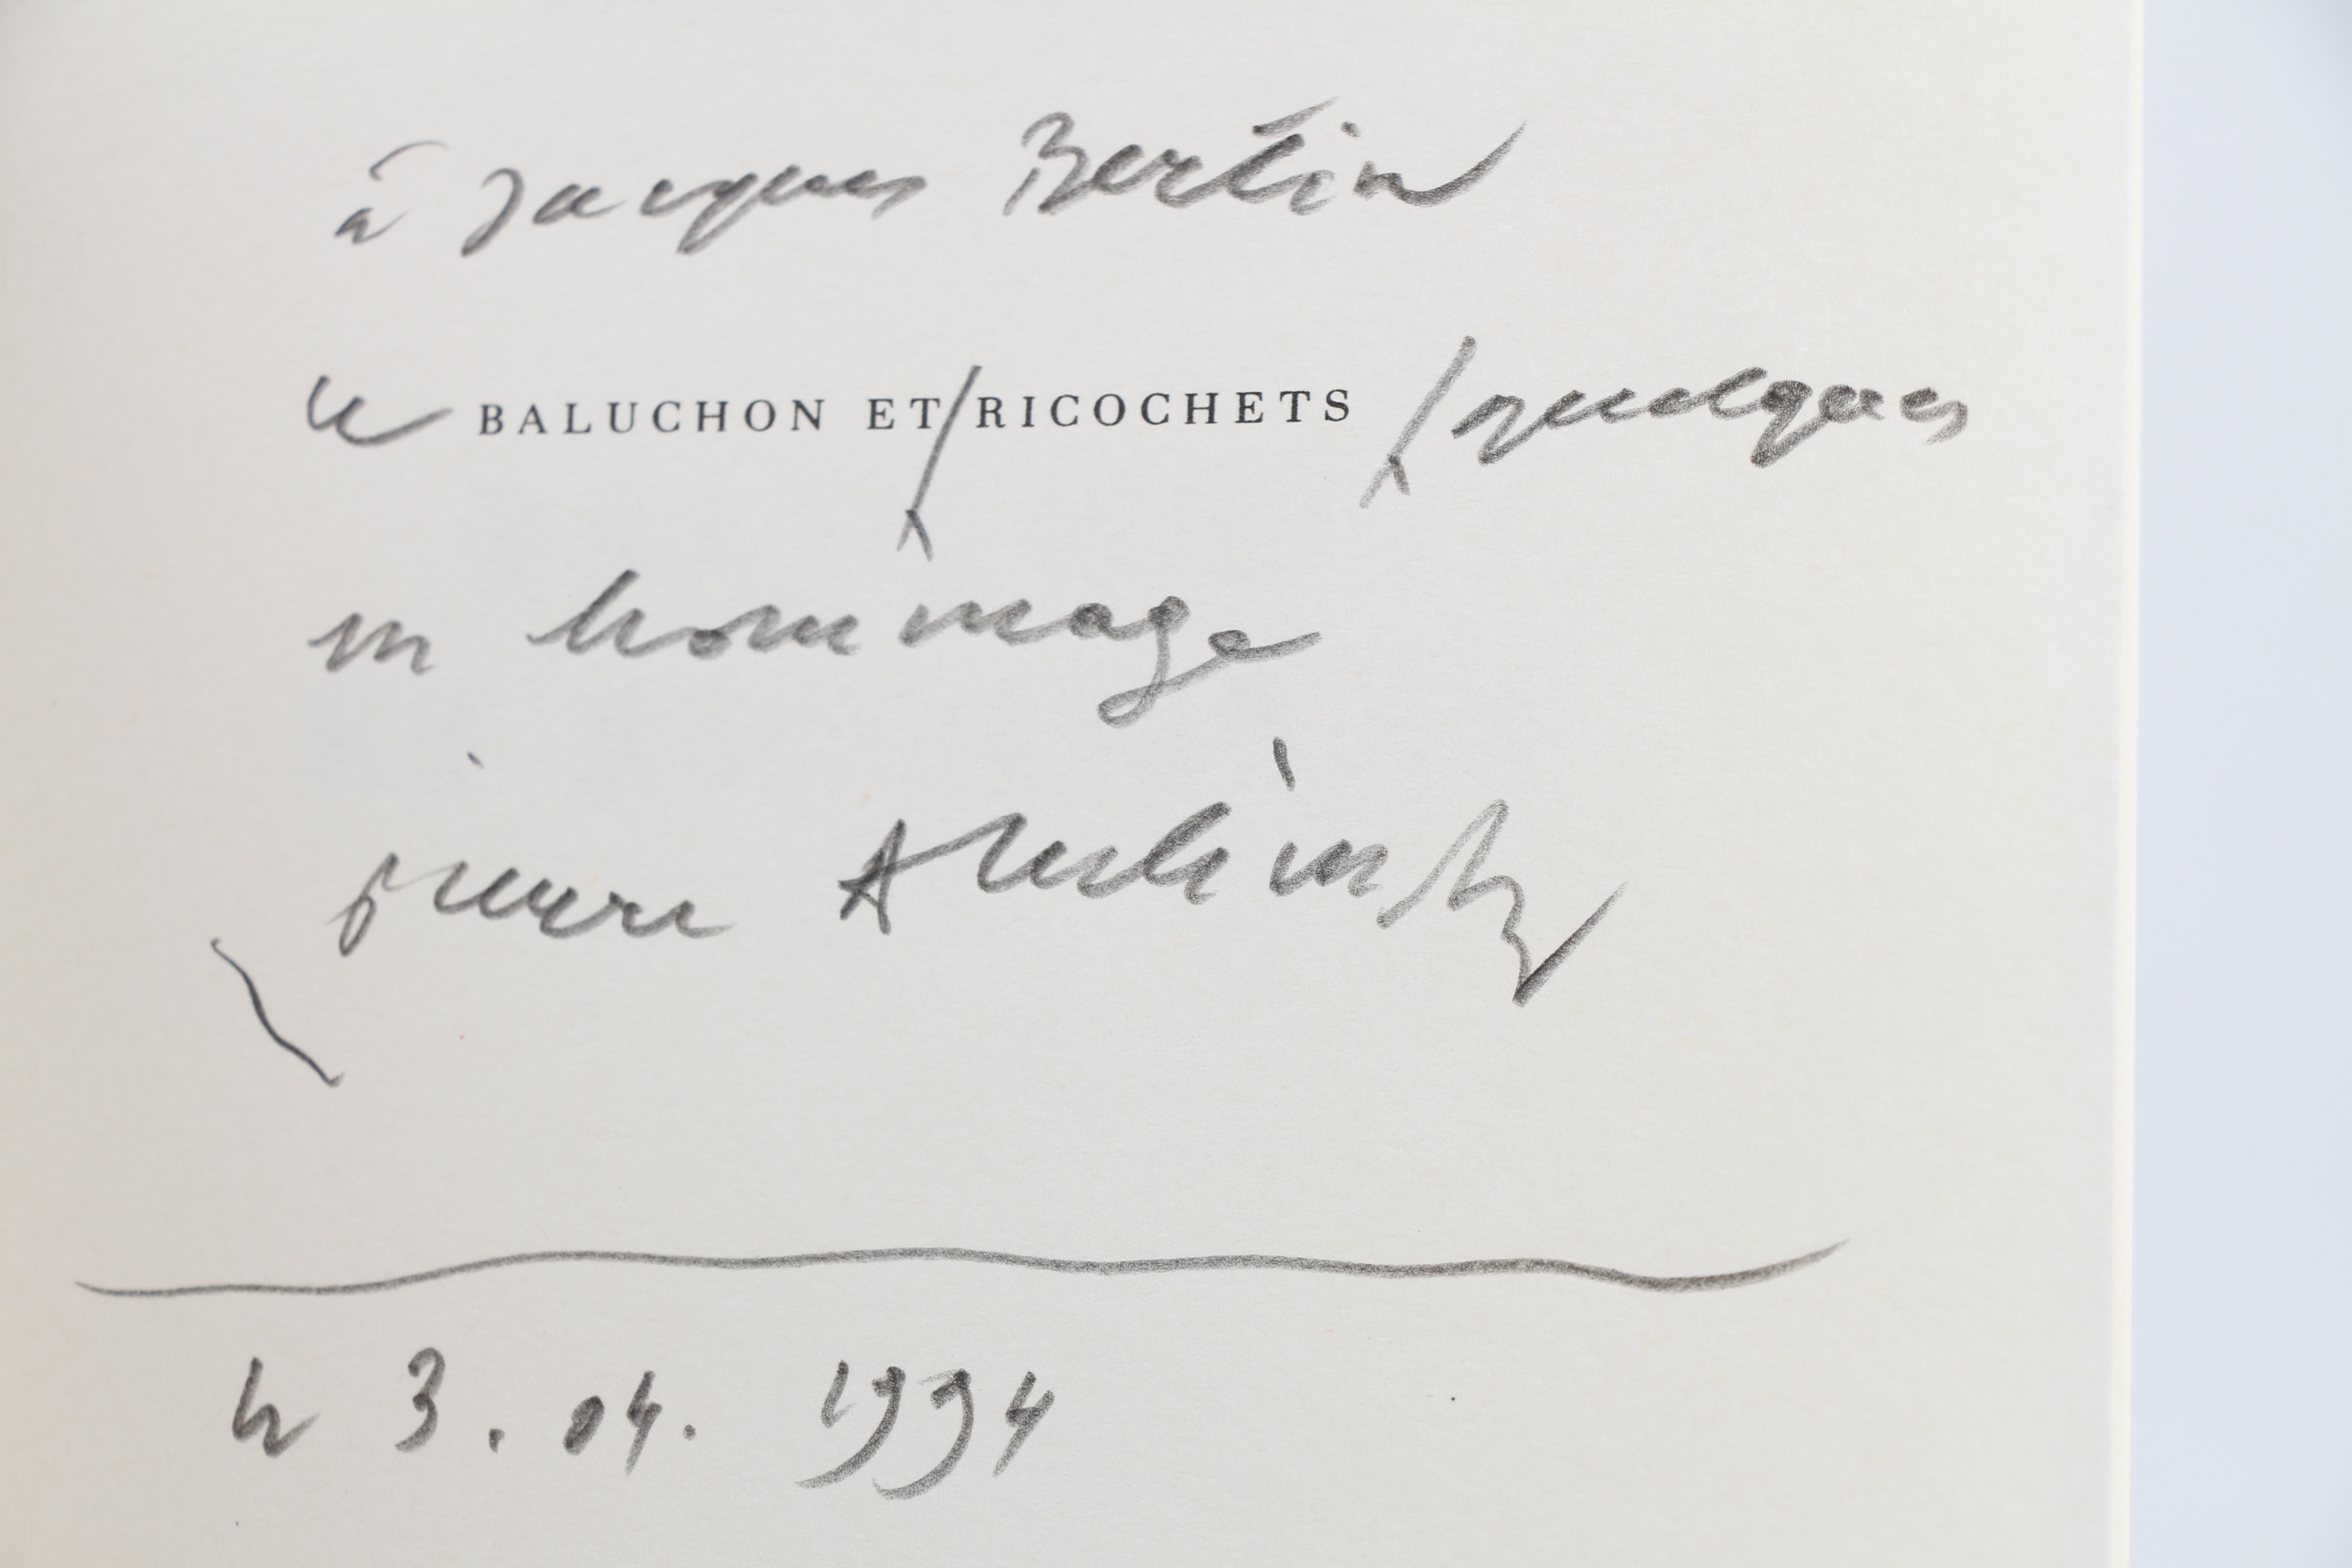 à Jacques Bertin
le BALUCHON ET / RICOCHETS / quelques
en hommage
pierre Alechinsky
le 3.04. 1994